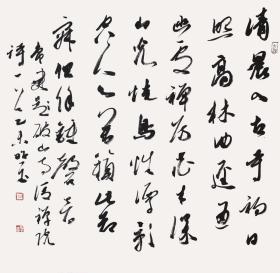 清晨入古寺初日
照高林曲迳通
幽處禅房花木深
山光悦鳥性潭影
空人心萬籟此都
寂但餘鐘磬音
常建題破山寺後禅院
詩一首乙未